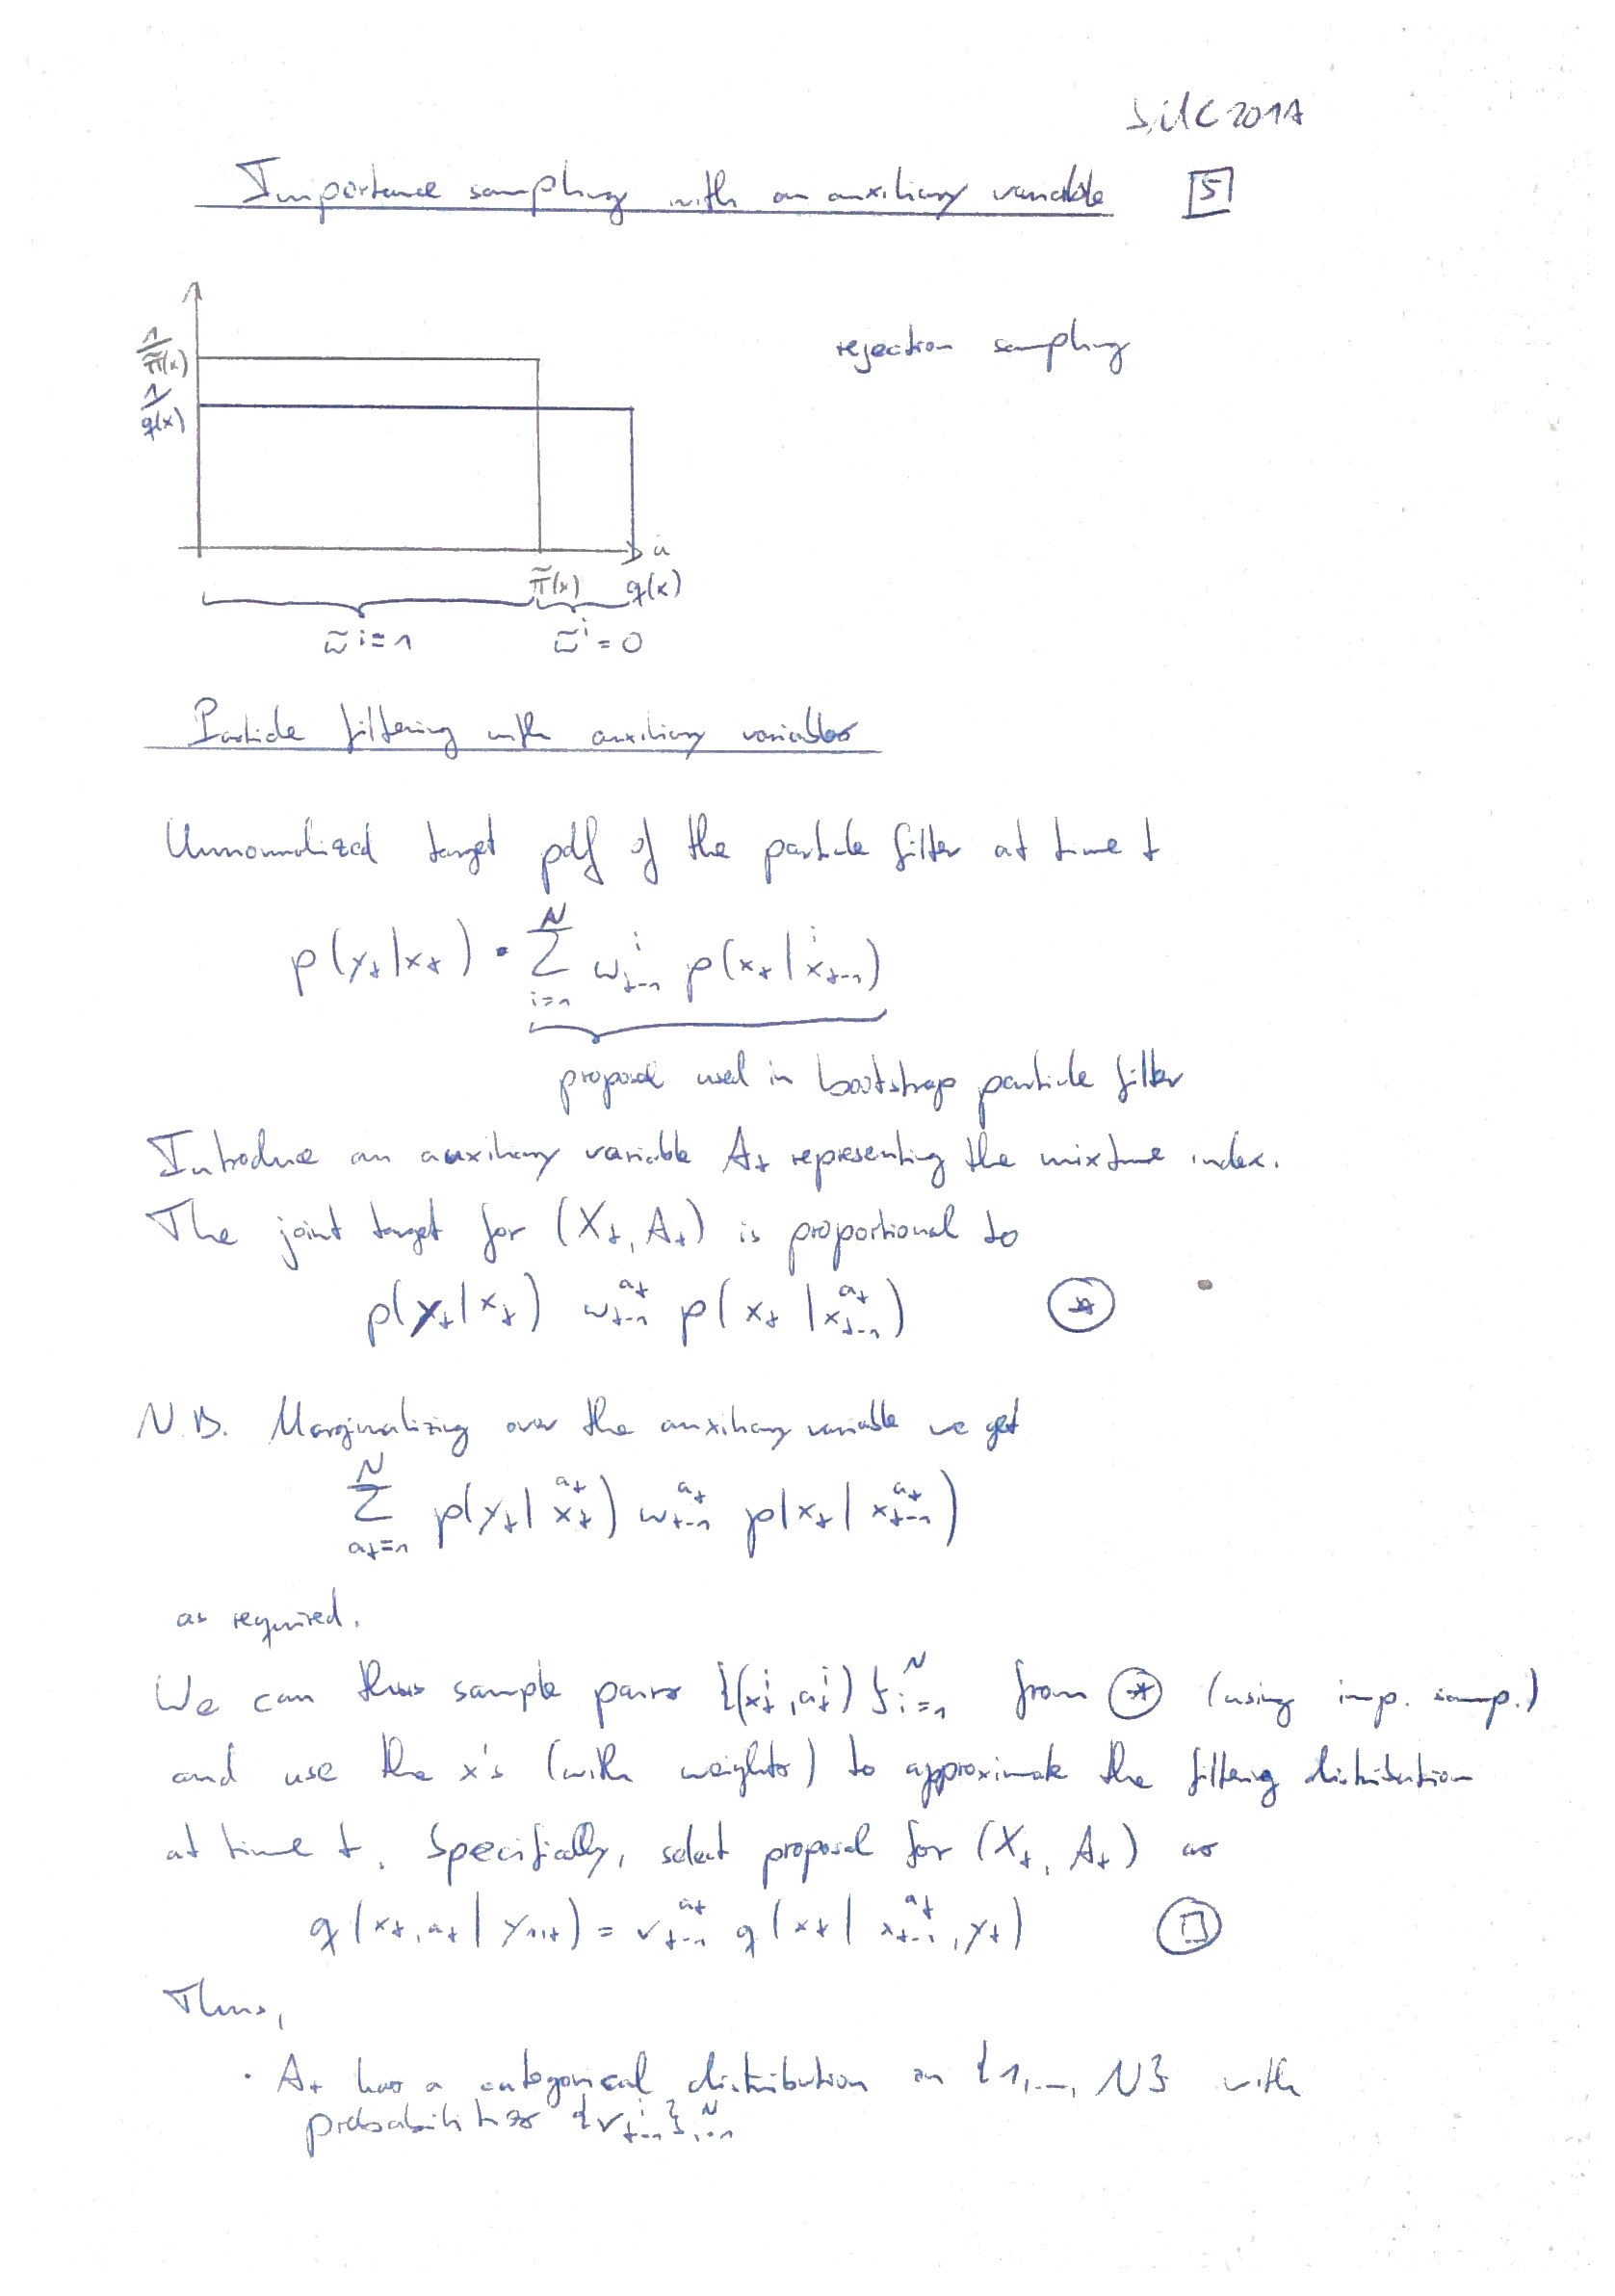 SMC 2017
Importance sampling with an auxiliary variable 5
rejection sampling
1/π̃(x)
1/q(x)
u
π̃(x) q(x)
ω̃^i = 1 ω̃^i = 0
Particle filtering with auxiliary variables
Unnormalized target pdf of the particle filter at time t
p(y_t|x_t) · Σ_{i=1}^N w_{t-1}^i p(x_t|x_{t-1}^i)
proposal used in bootstrap particle filter
Introduce an auxiliary variable A_t representing the mixture index.
The joint target for (X_t, A_t) is proportional to
p(y_t|x_t) w_{t-1}^{a_t} p(x_t|x_{t-1}^{a_t}) ⊛
N.B. Marginalizing over the auxiliary variable we get
Σ_{a_t=1}^N p(y_t|x_t^{a_t}) w_{t-1}^{a_t} p(x_t|x_{t-1}^{a_t})
as required.
We can thus sample pairs {(x_t^i, a_t^i)}_{i=1}^N from ⊛ (using imp. samp.)
and use the x's (with weights) to approximate the filtering distribution
at time t. Specifically, select proposal for (X_t, A_t) as
q(x_t, a_t|y_{1:t}) = v_{t-1}^{a_t} q(x_t|x_{t-1}^{a_t}, y_t) □
Thus,
· A_t has a categorical distribution on {1, ..., N} with
probabilities {v_{t-1}^i}_{i=1}^N